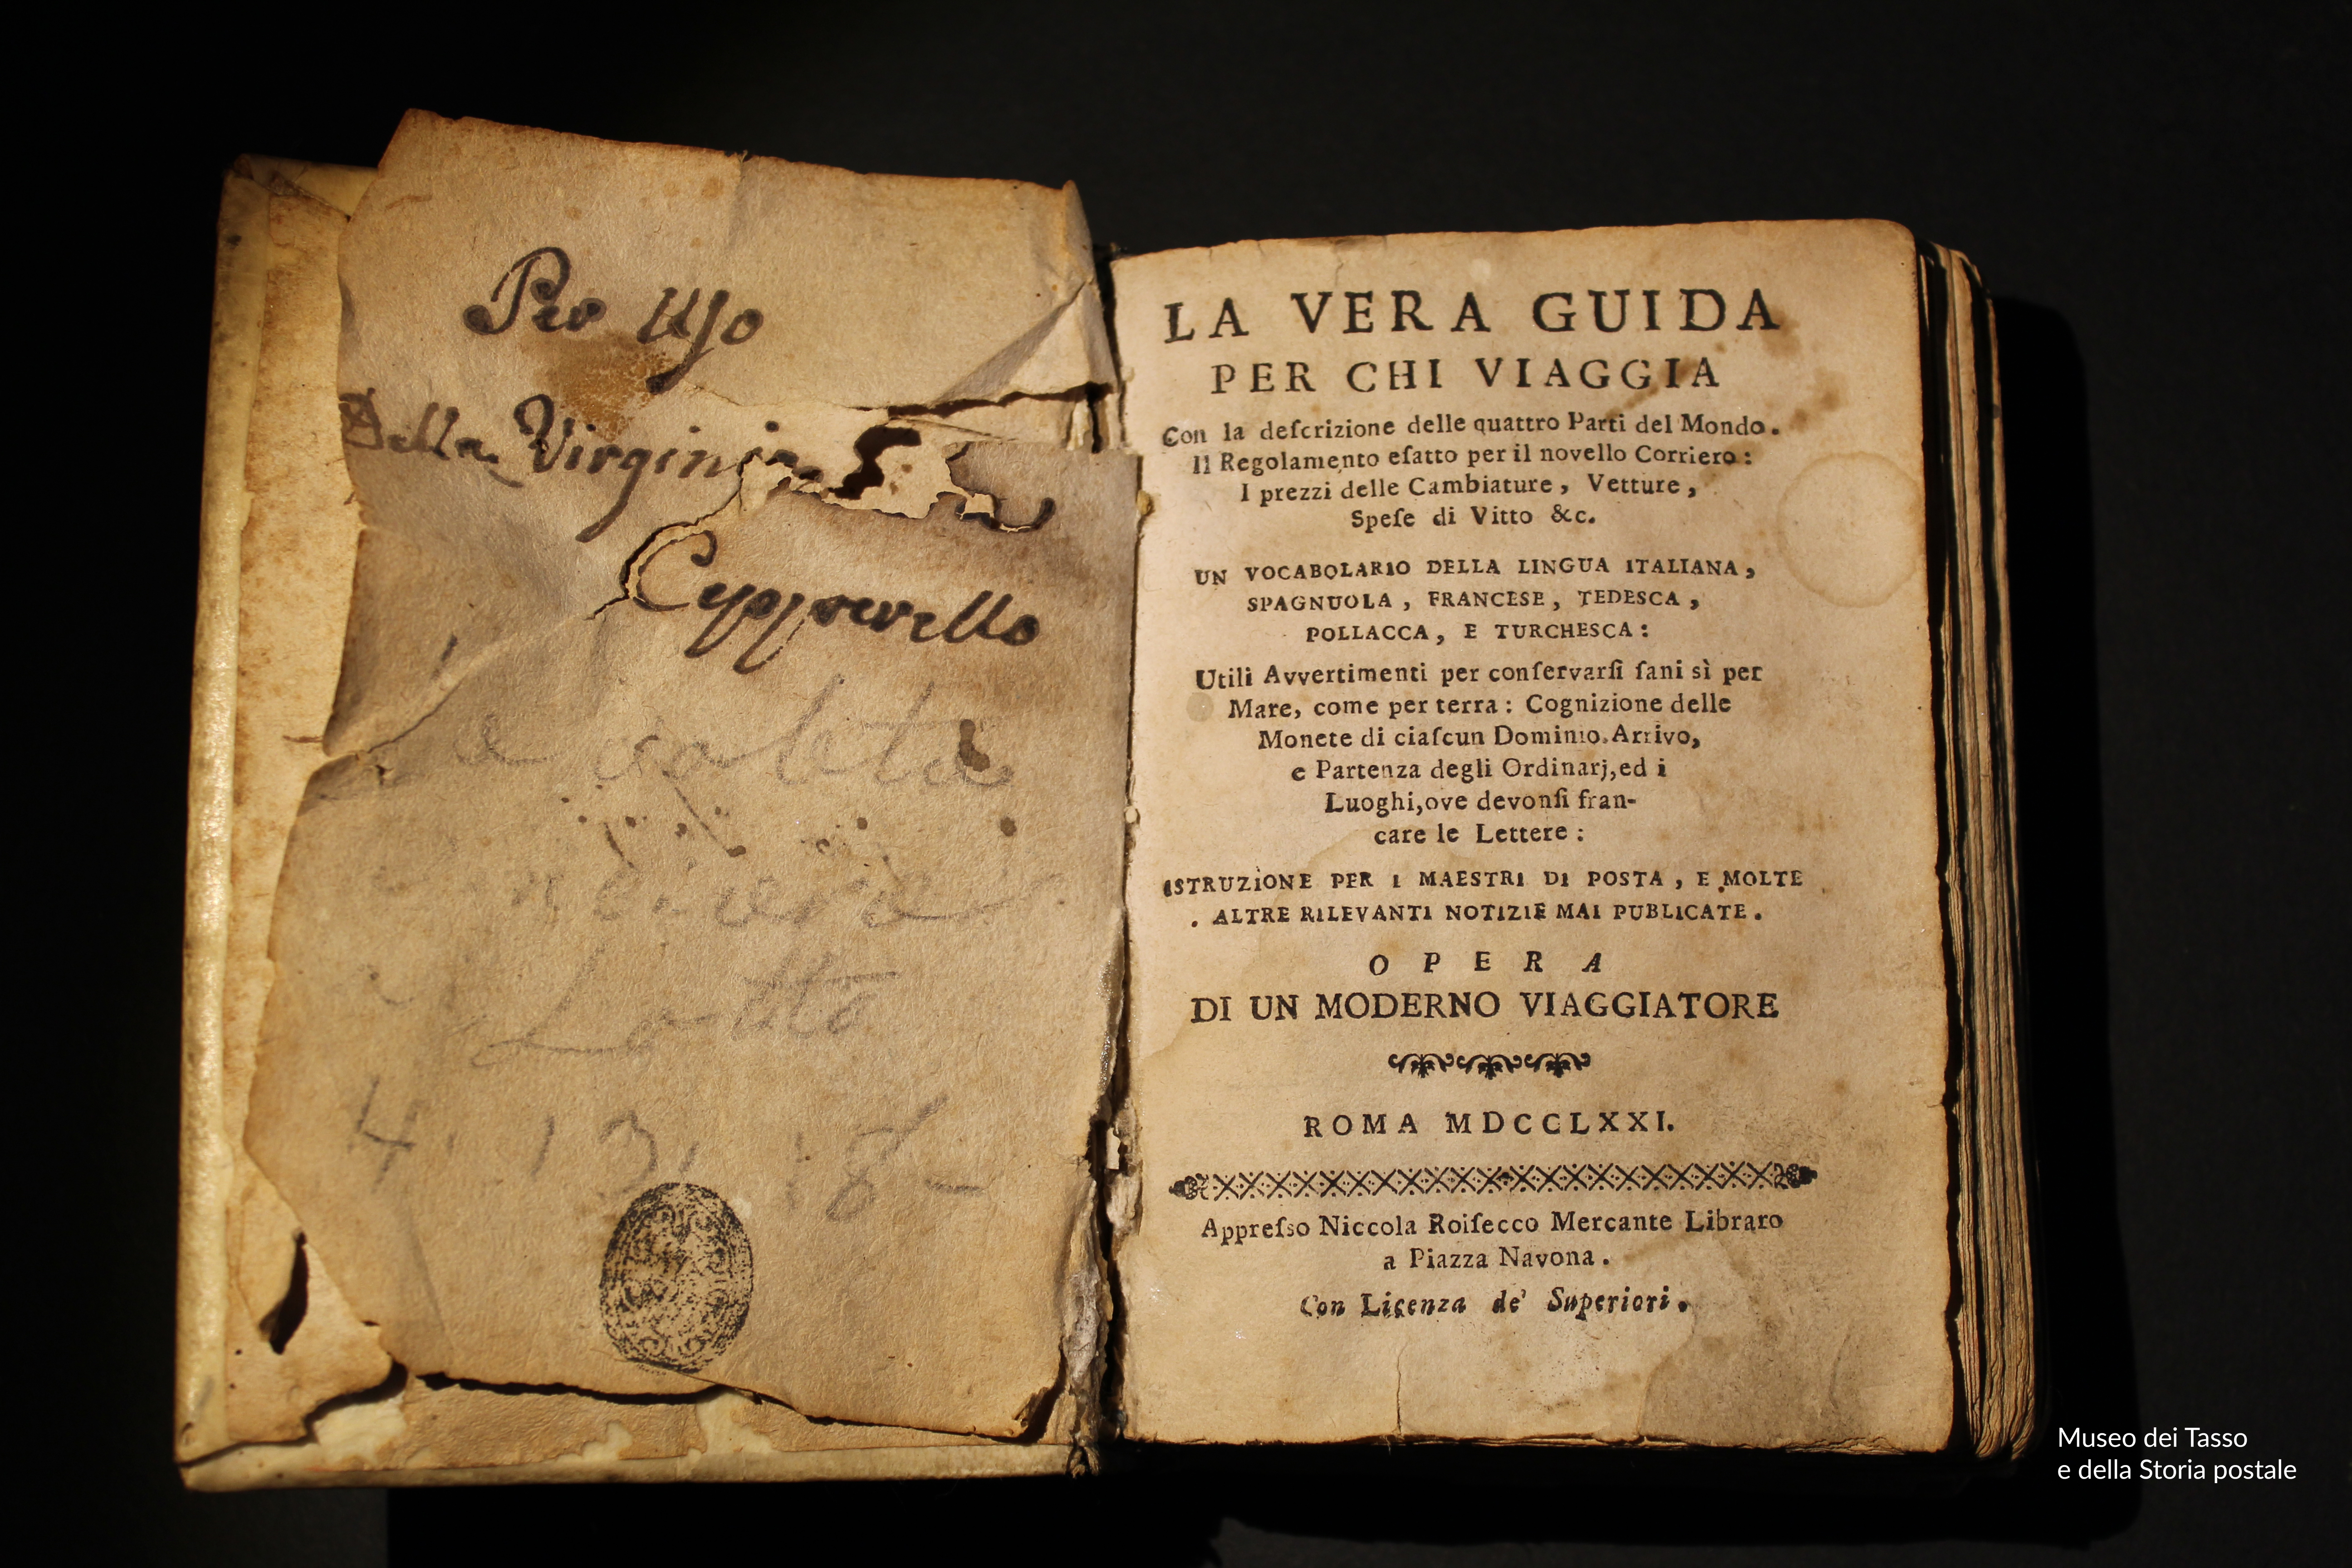 Per Uſo
Della Virginia
Cepperello
Lotto
4. 13. 18
LA VERA GUIDA
PER CHI VIAGGIA
Con la deſcrizione delle quattro Parti del Mondo.
Il Regolamento eſatto per il novello Corriero:
I prezzi delle Cambiature, Vetture,
Speſe di Vitto &c.
UN VOCABOLARIO DELLA LINGUA ITALIANA,
SPAGNUOLA, FRANCESE, TEDESCA,
POLLACCA, E TURCHESCA:
Utili Avvertimenti per conſervarſi ſani sì per
Mare, come per terra: Cognizione delle
Monete di ciaſcun Dominio. Arrivo,
e Partenza degli Ordinarj, ed i
Luoghi, ove devonſi fran-
care le Lettere:
ISTRUZIONE PER I MAESTRI DI POSTA, E MOLTE
ALTRE RILEVANTI NOTIZIE MAI PUBLICATE.
OPERA
DI UN MODERNO VIAGGIATORE
ROMA MDCCLXXI.
Appreſso Niccola Roiſecco Mercante Libraro
a Piazza Navona.
Con Licenza de' Superiori.
Museo dei Tasso
e della Storia postale